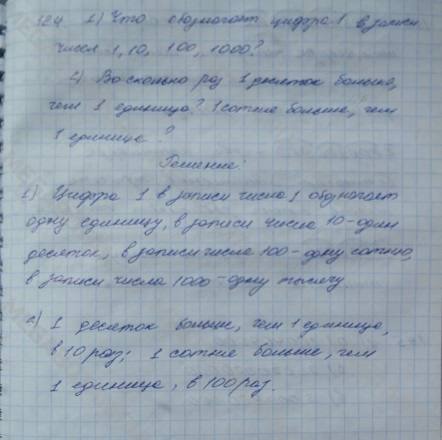 124 1) Что обозначает цифра 1 в записи
чисел 1, 10, 100, 1000?
2) Во сколько раз 1 десяток больше,
чем 1 единица? 1 сотня больше, чем
1 единица?
Решение:
1) Цифра 1 в записи числа 1 обозначает
одну единицу, в записи числа 10 - один
десяток, в записи числа 100 - одну сотню,
в записи числа 1000 - одну тысячу.
2) 1 десяток больше, чем 1 единица,
в 10 раз; 1 сотня больше, чем
1 единица, в 100 раз.